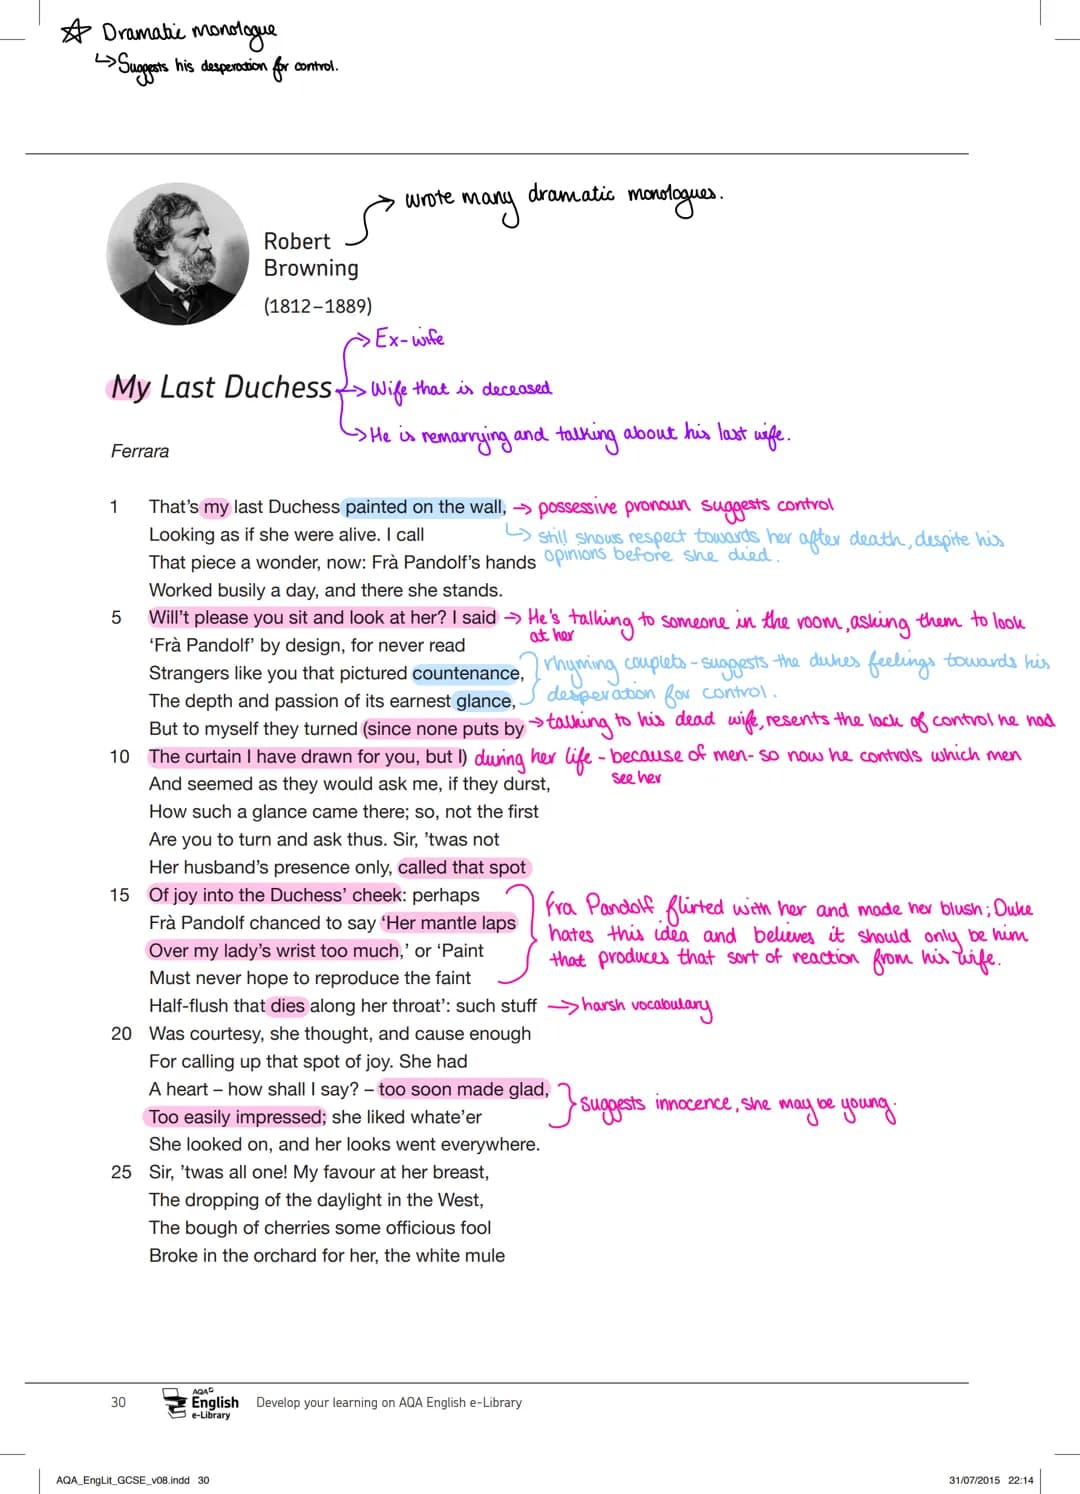 ☆ Dramatic monologue
↳ Suggests his desperation for control.
→ wrote many dramatic monologues.
Robert
Browning
(1812–1889)
→ Ex-wife
My Last Duchess → Wife that is deceased
→ He is remarrying and talking about his last wife.
Ferrara
1 That's my last Duchess painted on the wall, → possessive pronoun suggests control
Looking as if she were alive. I call ↳ still shows respect towards her after death, despite his
That piece a wonder, now: Frà Pandolf's hands opinions before she died.
Worked busily a day, and there she stands.
5 Will't please you sit and look at her? I said → He's talking to someone in the room, asking them to look
at her
'Frà Pandolf' by design, for never read
Strangers like you that pictured countenance, rhyming couplets - suggests the dukes feelings towards his
The depth and passion of its earnest glance, desperation for control.
But to myself they turned (since none puts by → talking to his dead wife, resents the lack of control he had
10 The curtain I have drawn for you, but I) during her life - because of men - so now he controls which men
see her
And seemed as they would ask me, if they durst,
How such a glance came there; so, not the first
Are you to turn and ask thus. Sir, 'twas not
Her husband's presence only, called that spot
15 Of joy into the Duchess' cheek: perhaps
Frà Pandolf chanced to say 'Her mantle laps
Over my lady's wrist too much,' or 'Paint
Must never hope to reproduce the faint
Fra Pandolf flirted with her and made her blush; Duke
hates this idea and believes it should only be him
that produces that sort of reaction from his wife.
Half-flush that dies along her throat': such stuff → harsh vocabulary
20 Was courtesy, she thought, and cause enough
For calling up that spot of joy. She had
A heart – how shall I say? – too soon made glad,
Too easily impressed; she liked whate'er
Suggests innocence, she may be young.
She looked on, and her looks went everywhere.
25 Sir, 'twas all one! My favour at her breast,
The dropping of the daylight in the West,
The bough of cherries some officious fool
Broke in the orchard for her, the white mule
30
AQA
English
e-Library
Develop your learning on AQA English e-Library
AQA_EngLit_GCSE_v08.indd 30
31/07/2015 22:14